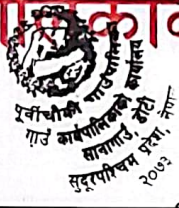 पूर्वीचौकी गाउँपालिका
गाउँ कार्यपालिकाको कार्यालय
सानागाउँ, डोटी
सुदूरपश्चिम प्रदेश, नेपा
२०७३